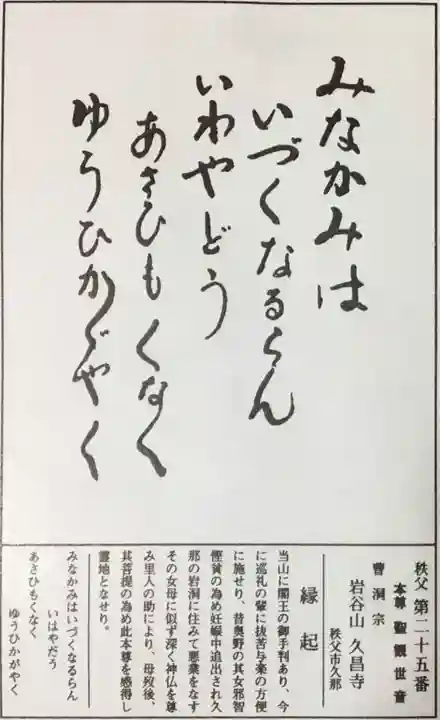 みなかみは
いづくなるらん
いわやどう
あさひもくなく
ゆうひかゞやく
秩父 第二十五番
本尊 聖観世音
曹洞宗
岩谷山 久昌寺
秩父市久那
縁起
当山に閻王の御手判あり、今
に巡礼の輩に抜苦与楽の方便
に施せり、昔奥野の其女邪智
慳貪の為め妊娠中追出され久
那の岩洞に住みて悪業をなす
その女母に似ず深く神仏を尊
み里人の助により、母歿後、
其菩提の為め此本尊を感得し
霊地となせり。
みなかみはいづくなるらん
いはやだう
あさひもくなく
ゆうひかがやく